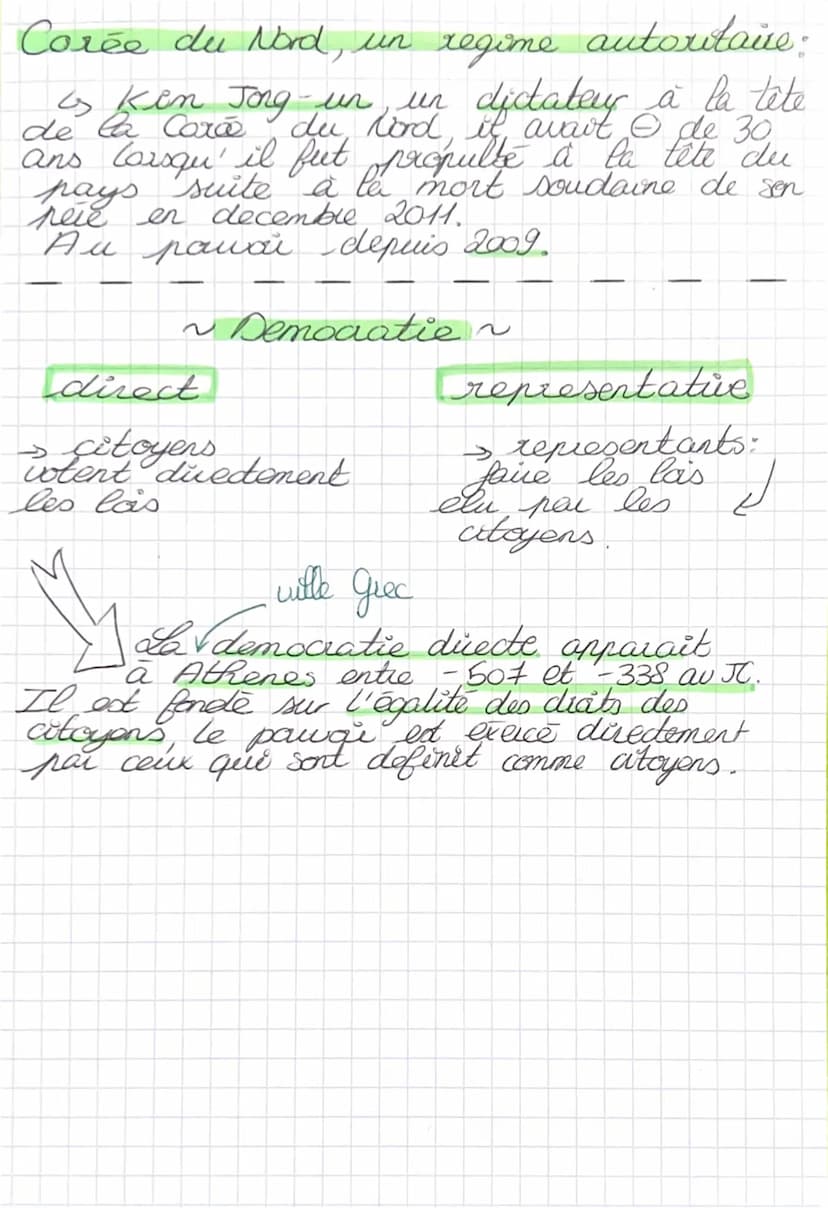 Corée du Nord, un regime autoritaire:
↳ Kim Jong-un, un dictateur à la tête
de la Corée du Nord, il avait ⊖ de 30
ans lorsqu'il fut propulté à la tête du
pays suite à la mort soudaine de son
père en decembre 2011.
Au pouvoir depuis 2009.
~ Democratie ~
direct
representative
→ citoyens
votent directement
les lois
→ representants:
faire les lois
elu par les
citoyens.
ville Grec
La democratie directe apparait
à Athenes entre -507 et -338 av JC.
Il est fondé sur l'égalité des droits des
citoyens, le pouvoir est exercé directement
par ceux qui sont definit comme citoyens.